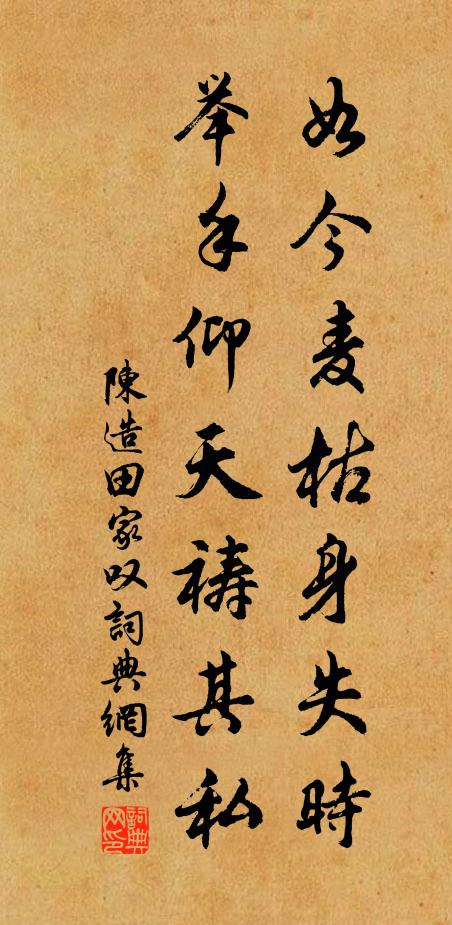 如今麦枯身失時
举手仰天祷其私
陳造田家叹詞典網集
詞典網印